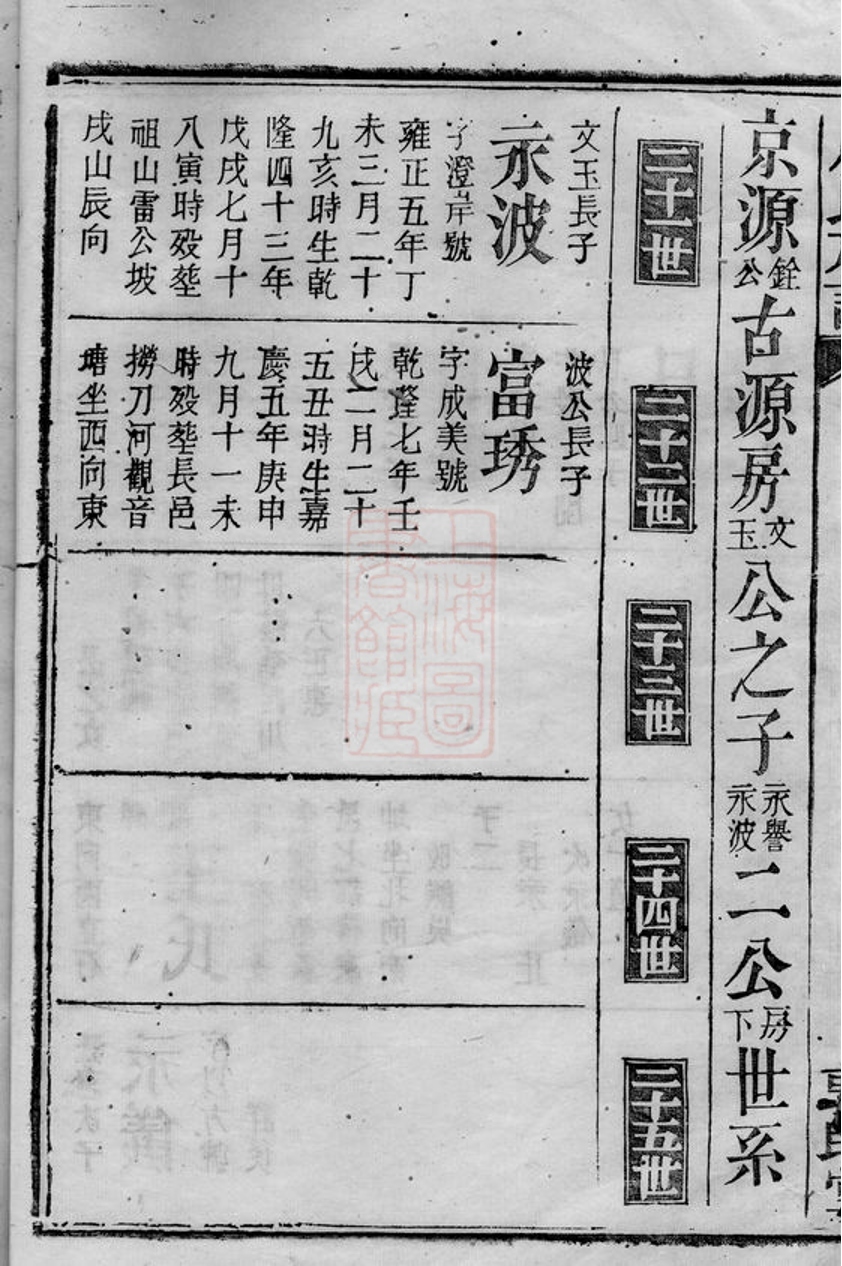 京源銓公古源房文玉公之子永譽永波二公房下世系
二十一世
二十二世
二十三世
二十四世
二十五世
文玉長子
永波
字澄岸號
雍正五年丁
未三月二十
九亥時生乾
隆四十三年
戊戌七月十
八寅時歿塟
祖山雷公坡
戌山辰向
波公長子
富琇
字成美號
乾隆七年壬
戌二月二十
五丑時生嘉
慶五年庚申
九月十一未
時歿塟長邑
撈刀河觀音
塘坐西向東
上海圖書館藏